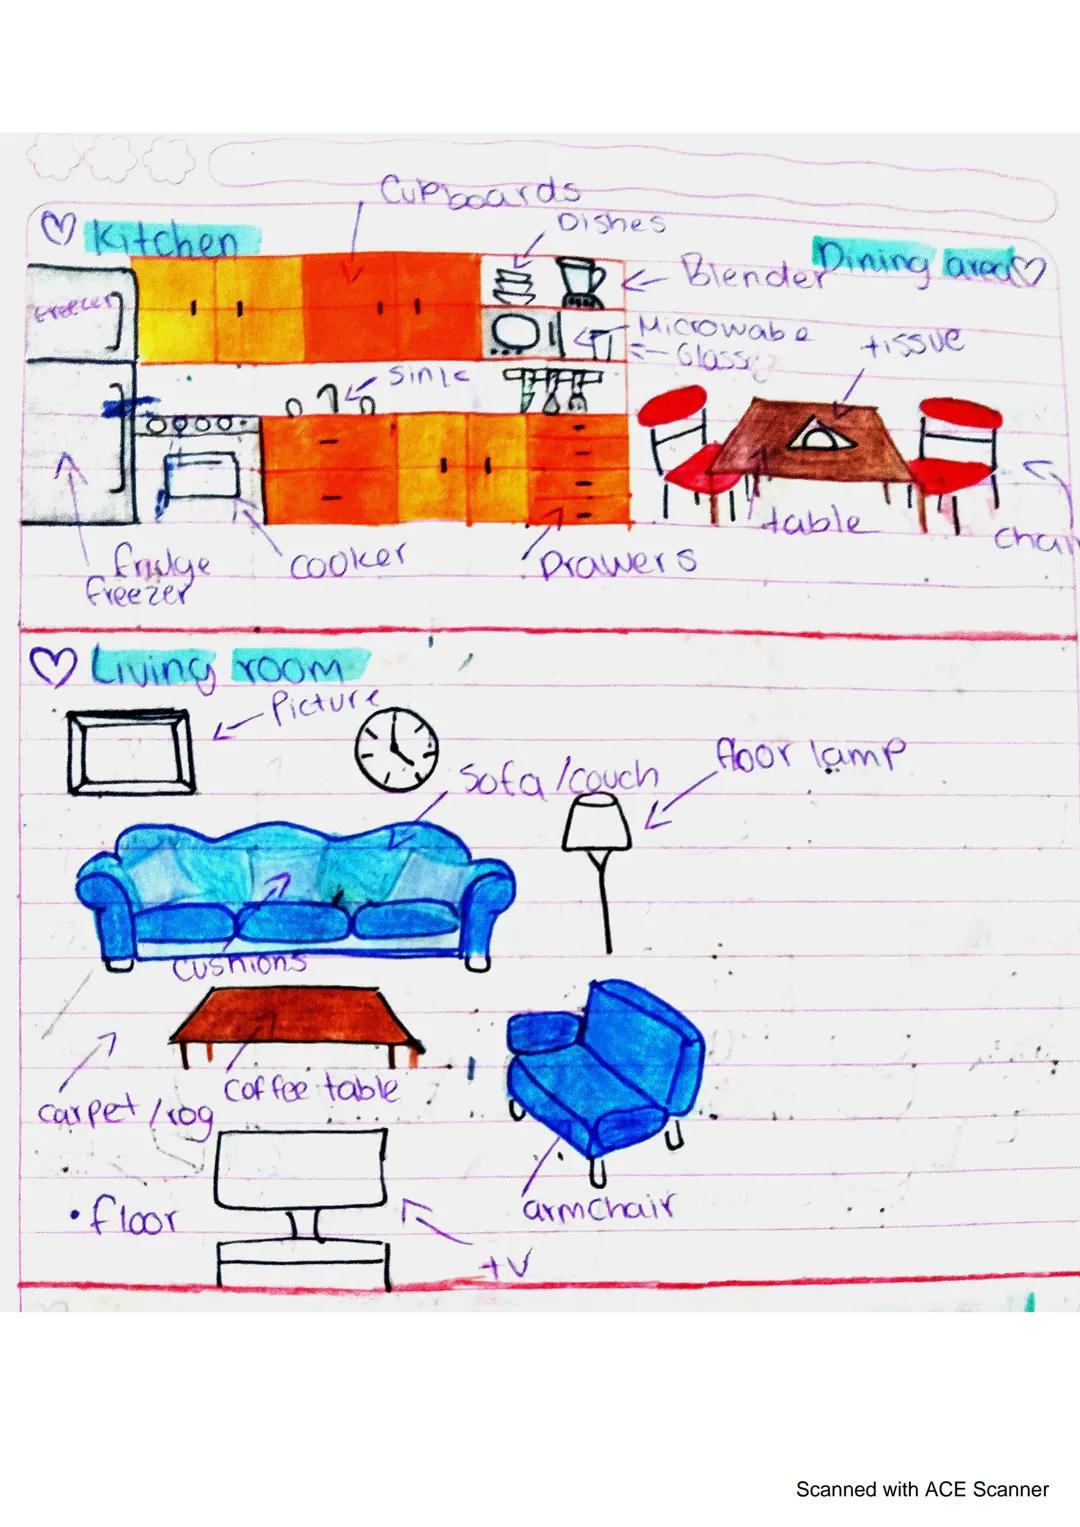 Cupboards
Dishes
Kitchen
Dining area
Blender
freezer
Microwabe
tissue
Glass
sink
table
chair
fridge
freezer
cooker
Drawers
Living room
Picture
Sofa/couch
floor lamp
cushions
coffee table
carpet/rog
armchair
• floor
tV
Scanned with ACE Scanner